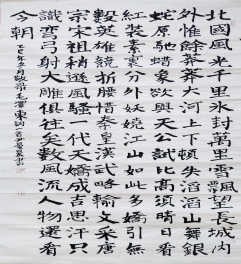 北國風光千里冰封萬里雪飄望長城內
外惟餘莽莽大河上下頓失滔滔山舞銀
蛇原馳蠟象欲與天公試比高須晴日看
紅裝素裹分外妖嬈江山如此多嬌引無
數英雄競折腰惜秦皇漢武略輸文采唐
宗宋祖稍遜風騷一代天驕成吉思汗只
識彎弓射大雕俱往矣數風流人物還看
今朝 年五月 毛澤東詞